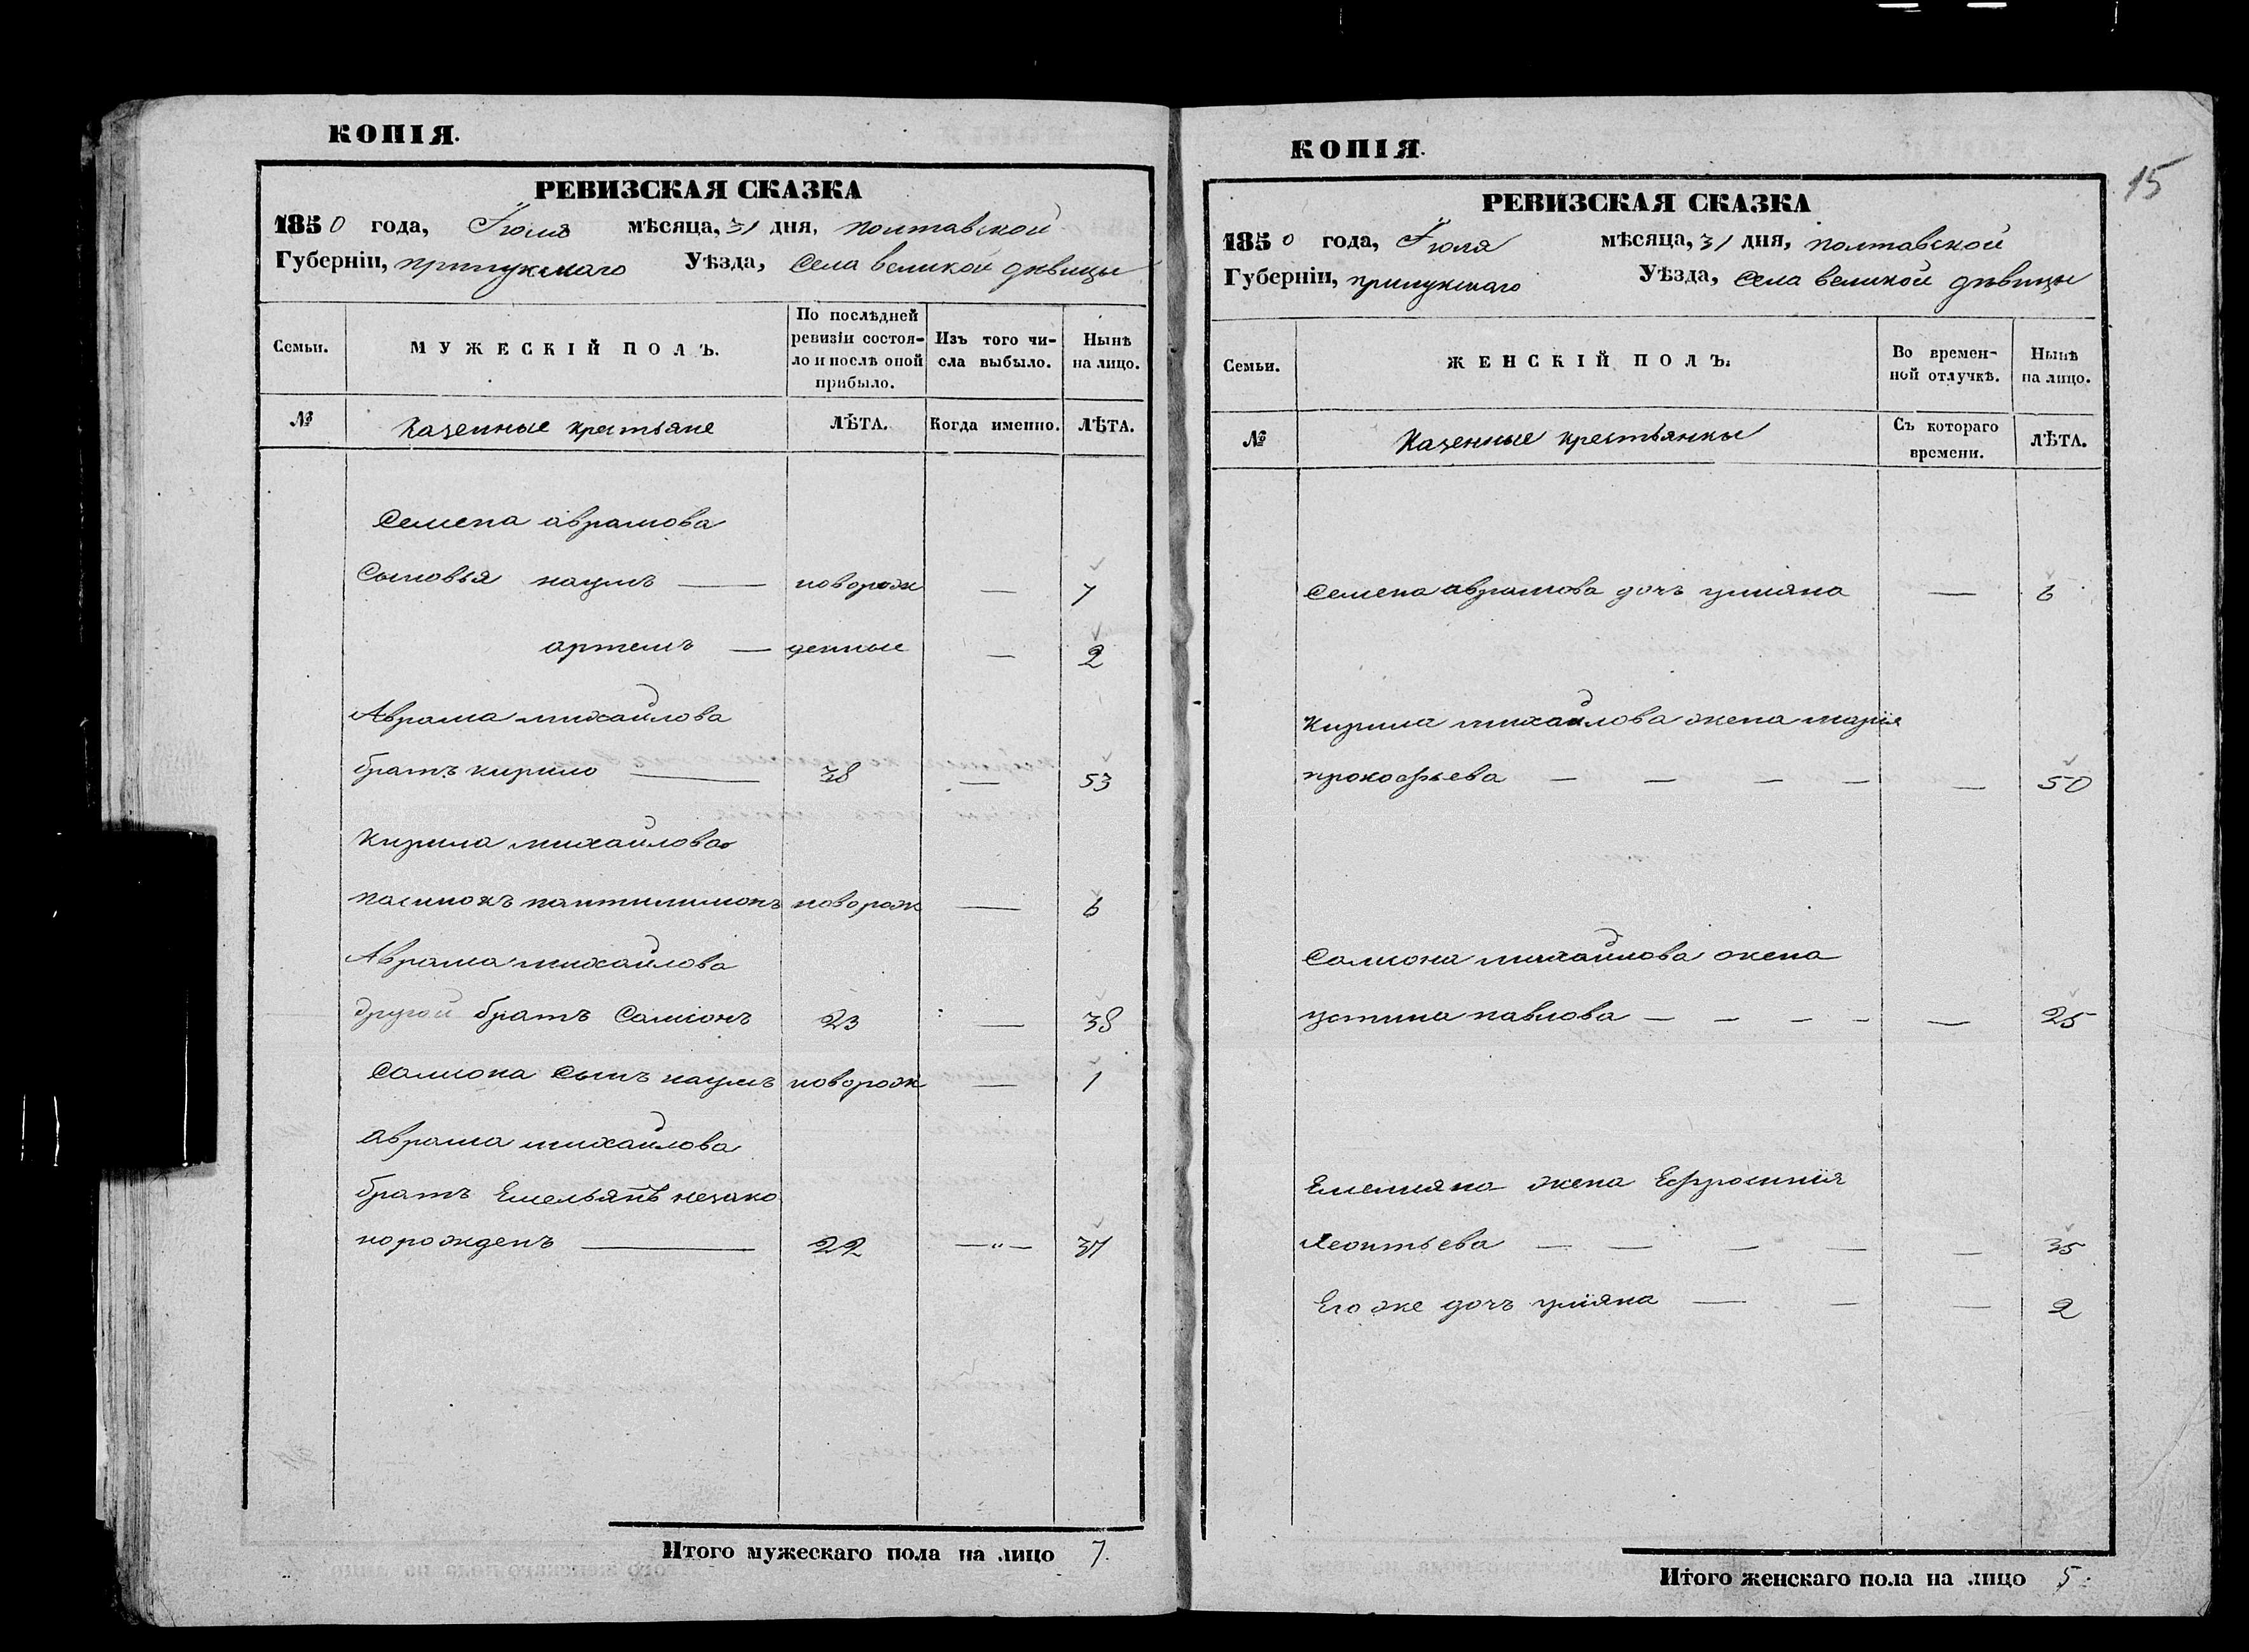 КОПІЯ.
РЕВИЗСКАЯ СКАЗКА
1850 года, Іюля мѣсяца, 31 дня, полтавской
Губерніи, прилукскаго Уѣзда, села великой дѣвицы
Семьи.
МУЖЕСКІЙ ПОЛЪ.
По послѣдней ревизіи состояло и послѣ оной прибыло.
Изъ того числа выбыло.
Нынѣ на лицо.
№
Казенные крестьяне
ЛѢТА.
Когда именно.
ЛѢТА.
Семена аврамова
Сыновья наумъ — новорож — 7
артемъ — денные — 2
Аврама михайлова
братъ кирило — 38 — 53
Кирила михайлова
пасинокъ пантилимонъ новорож — 6
Аврама михайлова
другой братъ Самсонъ 23 — 38
Самсона сынъ наумъ новорож — 1
Аврама михайлова
братъ Емельянъ незако
норожденъ — 22 —"— 37
Итого мужескаго пола на лицо 7.
КОПІЯ.
15
РЕВИЗСКАЯ СКАЗКА
1850 года, Іюля мѣсяца, 31 дня, полтавской
Губерніи, прилукскаго Уѣзда, села великой дѣвицы
Семьи.
ЖЕНСКІЙ ПОЛЪ.
Во временной отлучкѣ.
Нынѣ на лицо.
№
Казенные крестьянки
Съ котораго времени.
ЛѢТА.
Семена аврамова дочь улияна — 6
Кирила михайлова жена марія
прокофьева — — — — — 50
Самсона михайлова жена
устина павлова — — — — — 25
Емелияна жена Ефросинія
Леонтьева — — — — — 35
Его же дочь уліяна — — — 2
Итого женскаго пола на лицо 5.